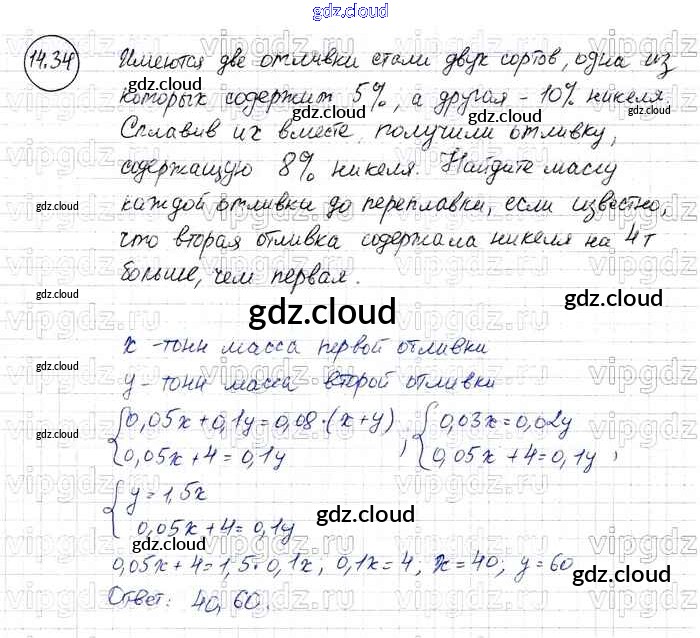 gdz.cloud
14.34 Имеются две отливки стали двух сортов, одна из
которых содержит 5%, а другая - 10% никеля.
Сплавив их вместе, получили отливку,
содержащую 8% никеля. Найдите массу
каждой отливки до переплавки, если известно,
что вторая отливка содержала никеля на 4т
больше, чем первая.
gdz.cloud
x - тонн масса первой отливки
y - тонн масса второй отливки
{0,05x+0,1y=0,08·(x+y), {0,03x=0,02y
{0,05x+4=0,1y {0,05x+4=0,1y,
{y=1,5x
{0,05x+4=0,1y
0,05x+4=1,5·0,1x, 0,1x=4, x=40, y=60
Ответ: 40, 60.